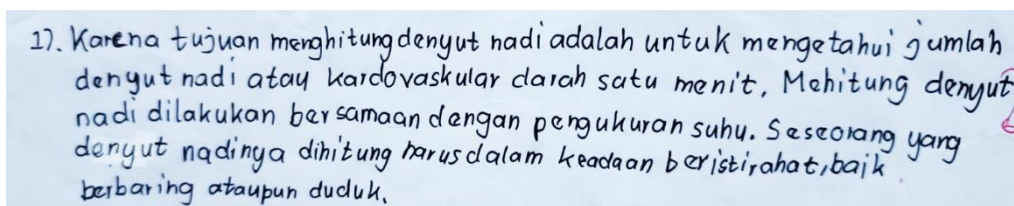 17. Karena tujuan menghitung denyut nadi adalah untuk mengetahui jumlah
denyut nadi atau kardovaskular darah satu menit. Mehitung denyut
nadi dilakukan bersamaan dengan pengukuran suhu. Seseorang yang
denyut nadinya dihitung harus dalam keadaan beristirahat, baik
berbaring ataupun duduk.